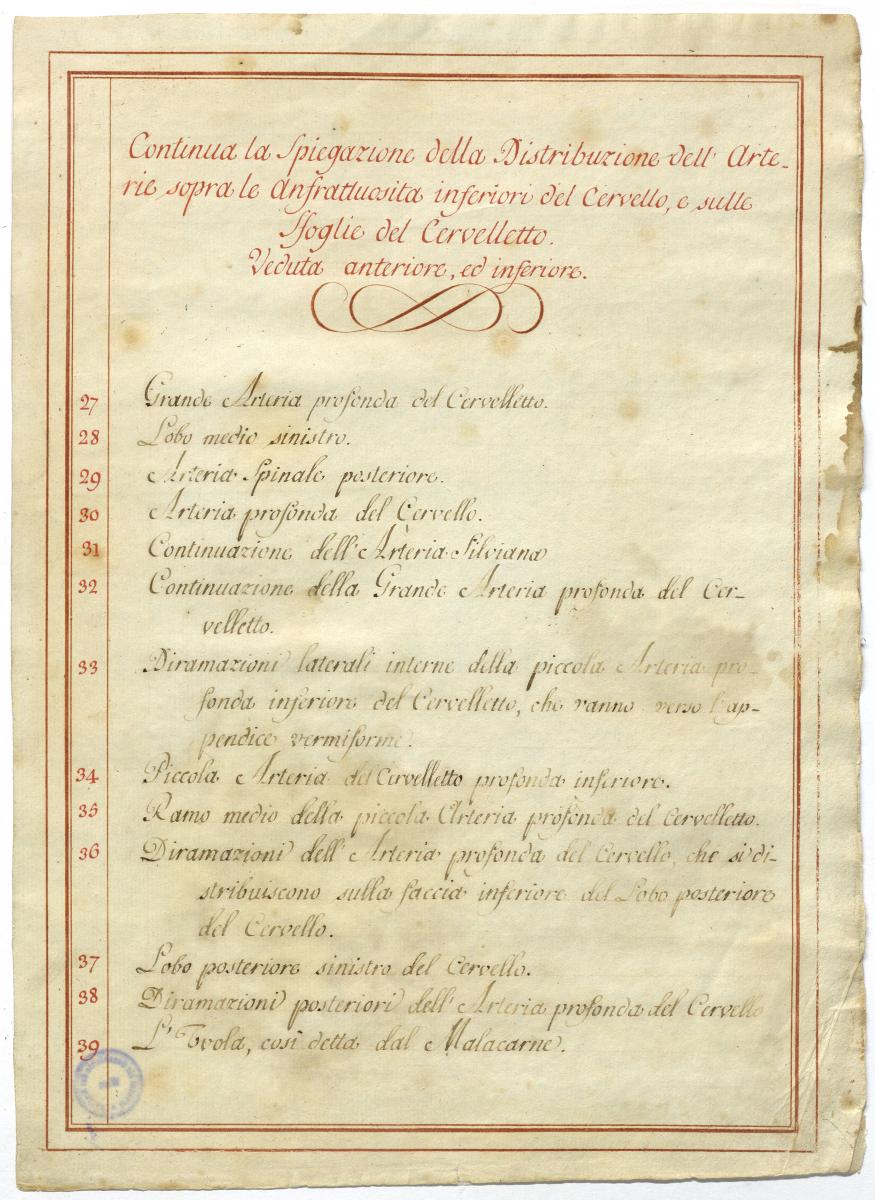 Continua la Spiegazione della Distribuzione dell' Arte-
rie sopra le Anfrattuosità inferiori del Cervello, e sulle
Sfoglie del Cervelletto.
Veduta anteriore, ed inferiore.
27 Grande Arteria profonda del Cervelletto.
28 Lobo medio sinistro.
29 Arteria Spinale posteriore.
30 Arteria profonda del Cervello.
31 Continuazione dell' Arteria Silviana
32 Continuazione della Grande Arteria profonda del Cer-
velletto.
33 Diramazioni laterali interne della piccola Arteria pro-
fonda inferiore del Cervelletto, che vanno verso l'ap-
pendice vermiforme.
34 Piccola Arteria del Cervelletto profonda inferiore.
35 Ramo medio della piccola Arteria profonda del Cervelletto.
36 Diramazioni dell' Arteria profonda del Cervello, che si di-
stribuiscono sulla faccia inferiore del Lobo posteriore
del Cervello.
37 Lobo posteriore sinistro del Cervello.
38 Diramazioni posteriori dell' Arteria profonda del Cervello
39 L' Uvola, così detta dal Malacarne.